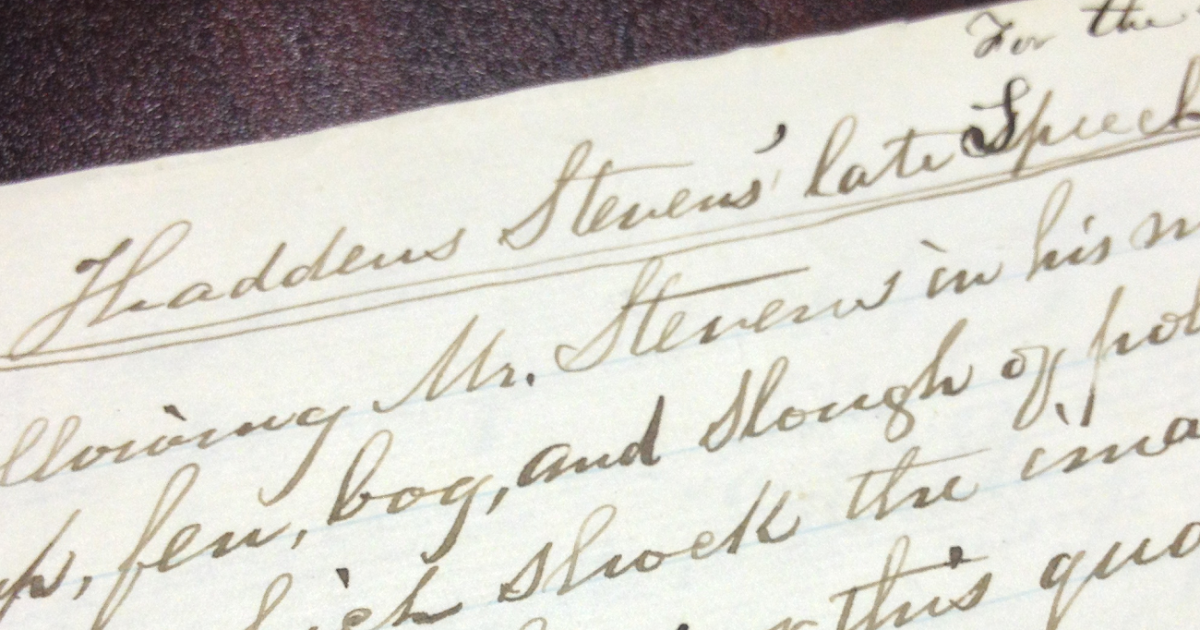 For the
Thaddeus Stevens' late Speech
llowing Mr. Stevens in his
, fen, bog, and slough of pol
ich shock the ima
this qua